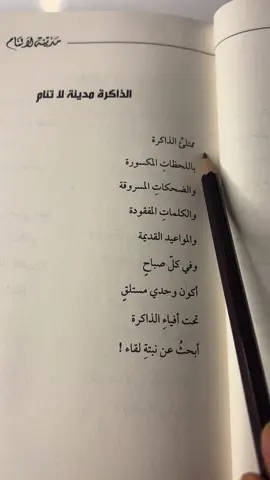 مدينة لا تنام
الذاكرة مدينة لا تنام
ممتلئُ الذاكرة
باللحظاتِ المكسورة
والضحكاتِ المسروقة
والكلماتِ المفقودة
والمواعيد القديمة
وفي كلّ صباحٍ
أكون وحدي مستلقٍ
تحت أفياءِ الذاكرة
أبحثُ عن نبتةِ لقاء !